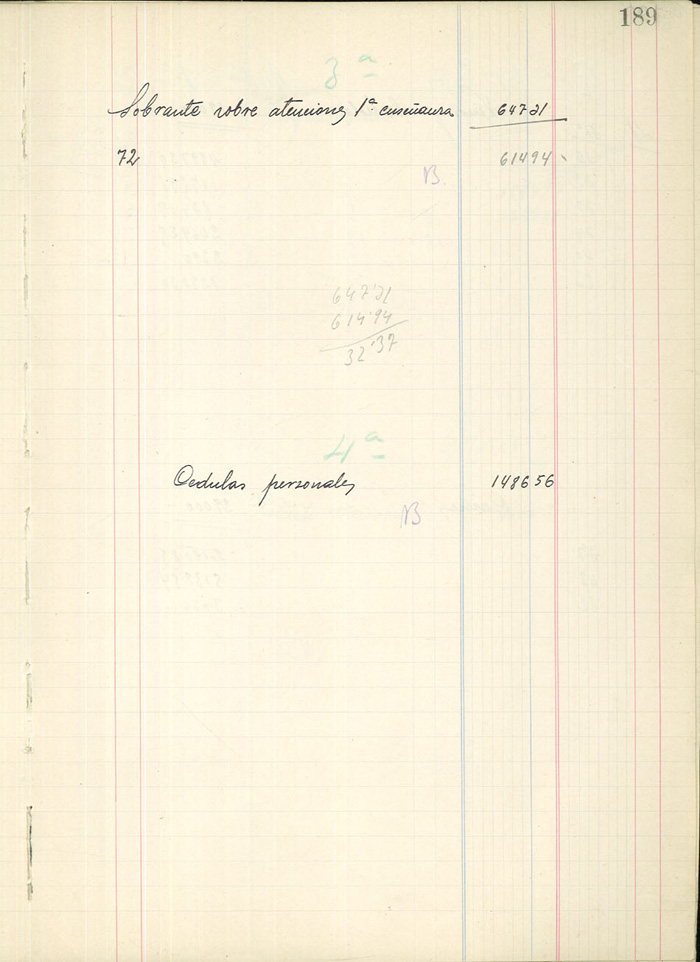 189
3ª
Sobrante sobre atenciones 1ª enseñanza 64721
72 61494
B.
647'21
614'94
32'37
4ª
Cedulas personales 148656
B